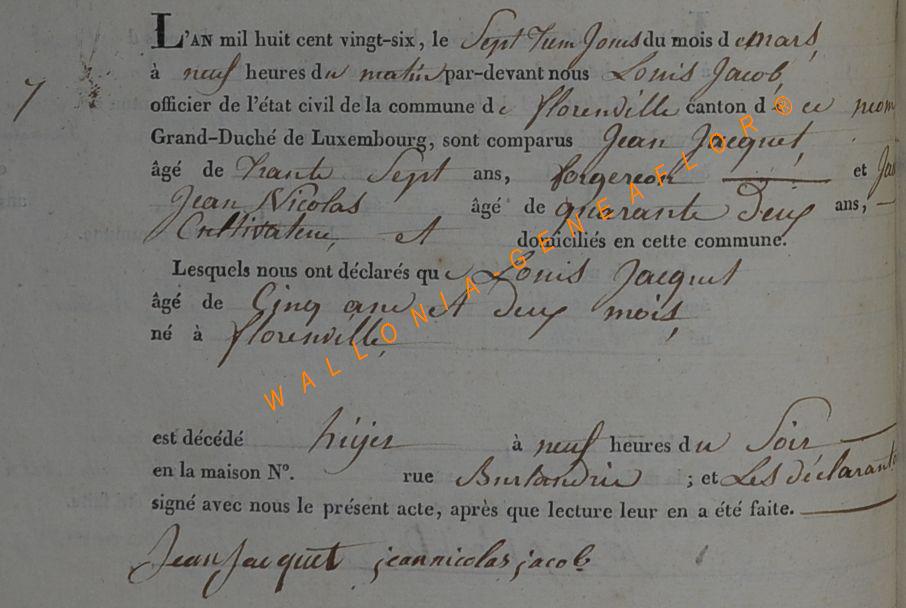 L'AN mil huit cent vingt-six, le Septiem Jours du mois de mars,
à neuf heures du matin par-devant nous Louis Jacob,
7
officier de l'état civil de la commune de florenville canton de ce nom
Grand-Duché de Luxembourg, sont comparus Jean Jacquet,
âgé de trante Sept ans, forgeron et Ja
Jean Nicolas âgé de quarante Deux ans,
Cultivateur, et domiciliés en cette commune.
Lesquels nous ont déclarés que Louis Jacquet
âgé de Cinq ans et deux mois,
né à florenville,
est décédé hÿer à neuf heures du Soir
en la maison N°. rue ; et Les déclarants
signé avec nous le présent acte, après que lecture leur en a été faite.
Jean Jacquet jeannicolas jacob
WALLONIA-GENEAFLOR®